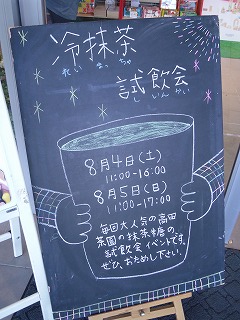 冷抹茶
れいまっちゃ
試飲会
しいんかい
8月4日(土)
11:00-16:00
8月5日(日)
11:00-17:00
毎回大人気の高田
茶園の抹茶糖の
試飲会イベントです。
ぜひ、おためし下さい。